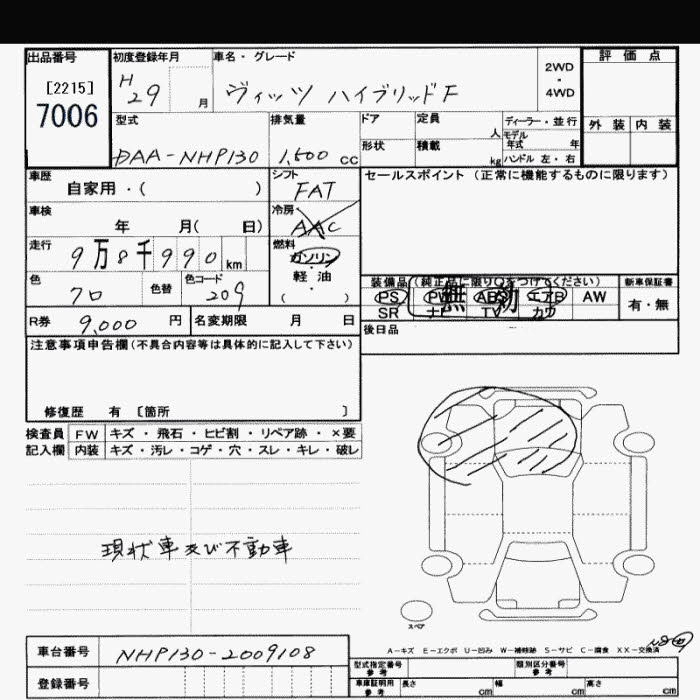 出品番号
[2215]
7006
初度登録年月
H29 月
車名・グレード
ヴィッツ ハイブリッドF
2WD
・
4WD
評価点
外装 内装
型式
DAA-NHP130
排気量
1,500 cc
ドア 定員 人
形状 積載 kg
ディーラー・並行
モデル年式 年
ハンドル 左・右
車歴
自家用・( )
シフト
FAT
セールスポイント(正常に機能するものに限ります)
車検
年 月( 日)
冷房
AAC
走行
9万8千990km
燃料
ガソリン
・
軽油
( )
色
クロ
色替
色コード
209
装備品(純正品に限り○をつけてください)
PS PW ABS エアB AW
SR ナビ TV カワ
無効
新車保証書
有・無
R券 9,000 円
名変期限 月 日
後日品
注意事項申告欄(不具合内容等は具体的に記入して下さい)
修復歴 有 〔箇所 〕
検査員 FW キズ・飛石・ヒビ割・リペア跡・×要
記入欄 内装 キズ・汚レ・コゲ・穴・スレ・キレ・破レ
現状車及び不動車
スペア
A-キズ E-エクボ U-凹み W-補修跡 S-サビ C-腐食 XX-交換済
車台番号 NHP130-2009108
登録番号
型式指定番号 参考
類別区分番号 参考
車庫証明用 参考 長さ cm 幅 cm 高さ cm